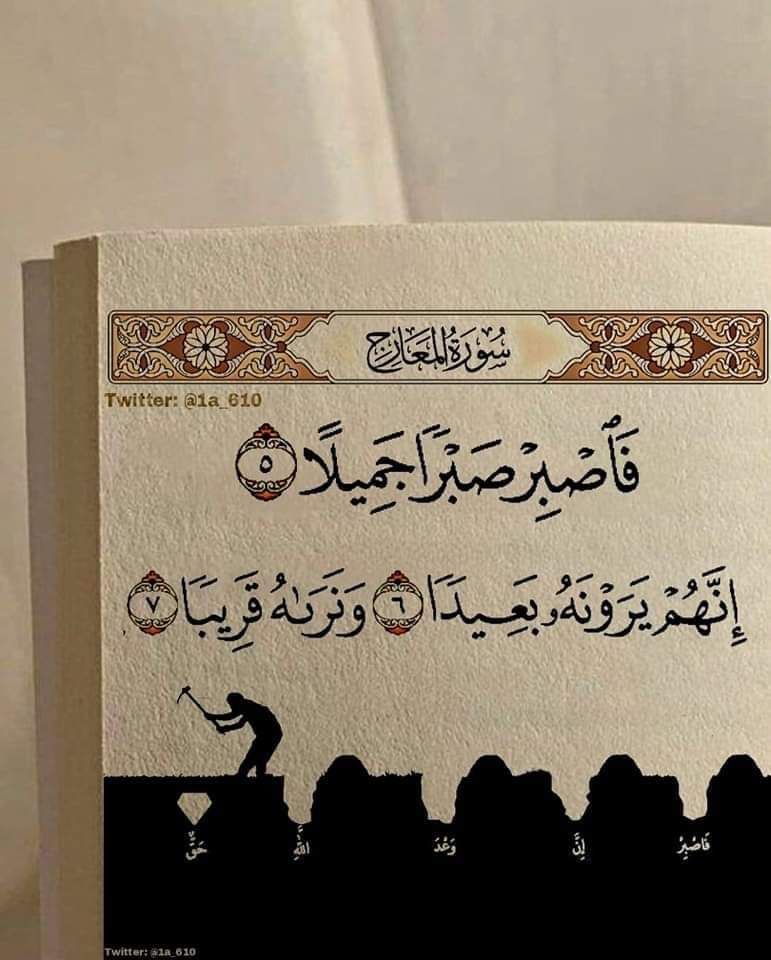 سُورَةُ المَعَارِجِ
Twitter: @1a_610
فَٱصْبِرْ صَبْرًا جَمِيلًا ٥
إِنَّهُمْ يَرَوْنَهُۥ بَعِيدًا ٦ وَنَرَىٰهُ قَرِيبًا ٧
فَاصْبِرْ إِنَّ وَعْدَ اللَّهِ حَقٌّ
Twitter: @1a_610